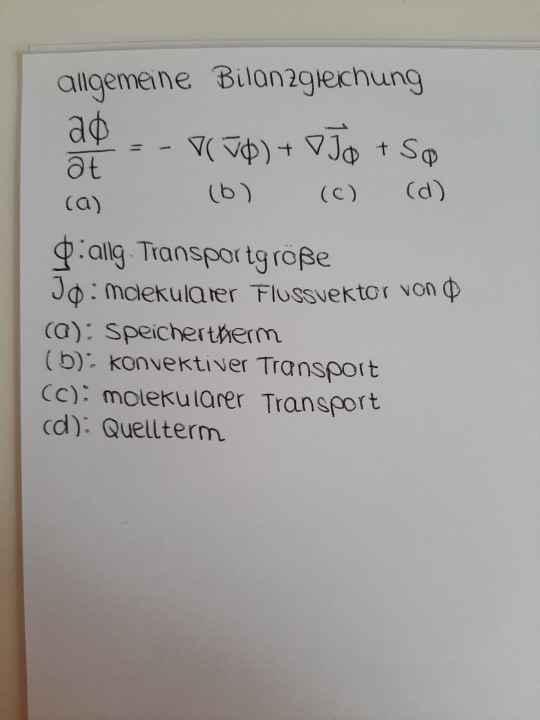 allgemeine Bilanzgleichung
∂Φ/∂t = - ∇(v̄Φ) + ∇J⃗Φ + SΦ
(a) (b) (c) (d)
Φ: allg. Transportgröße
J⃗Φ: molekularer Flussvektor von Φ
(a): Speichertherm
(b): konvektiver Transport
(c): molekularer Transport
(d): Quellterm